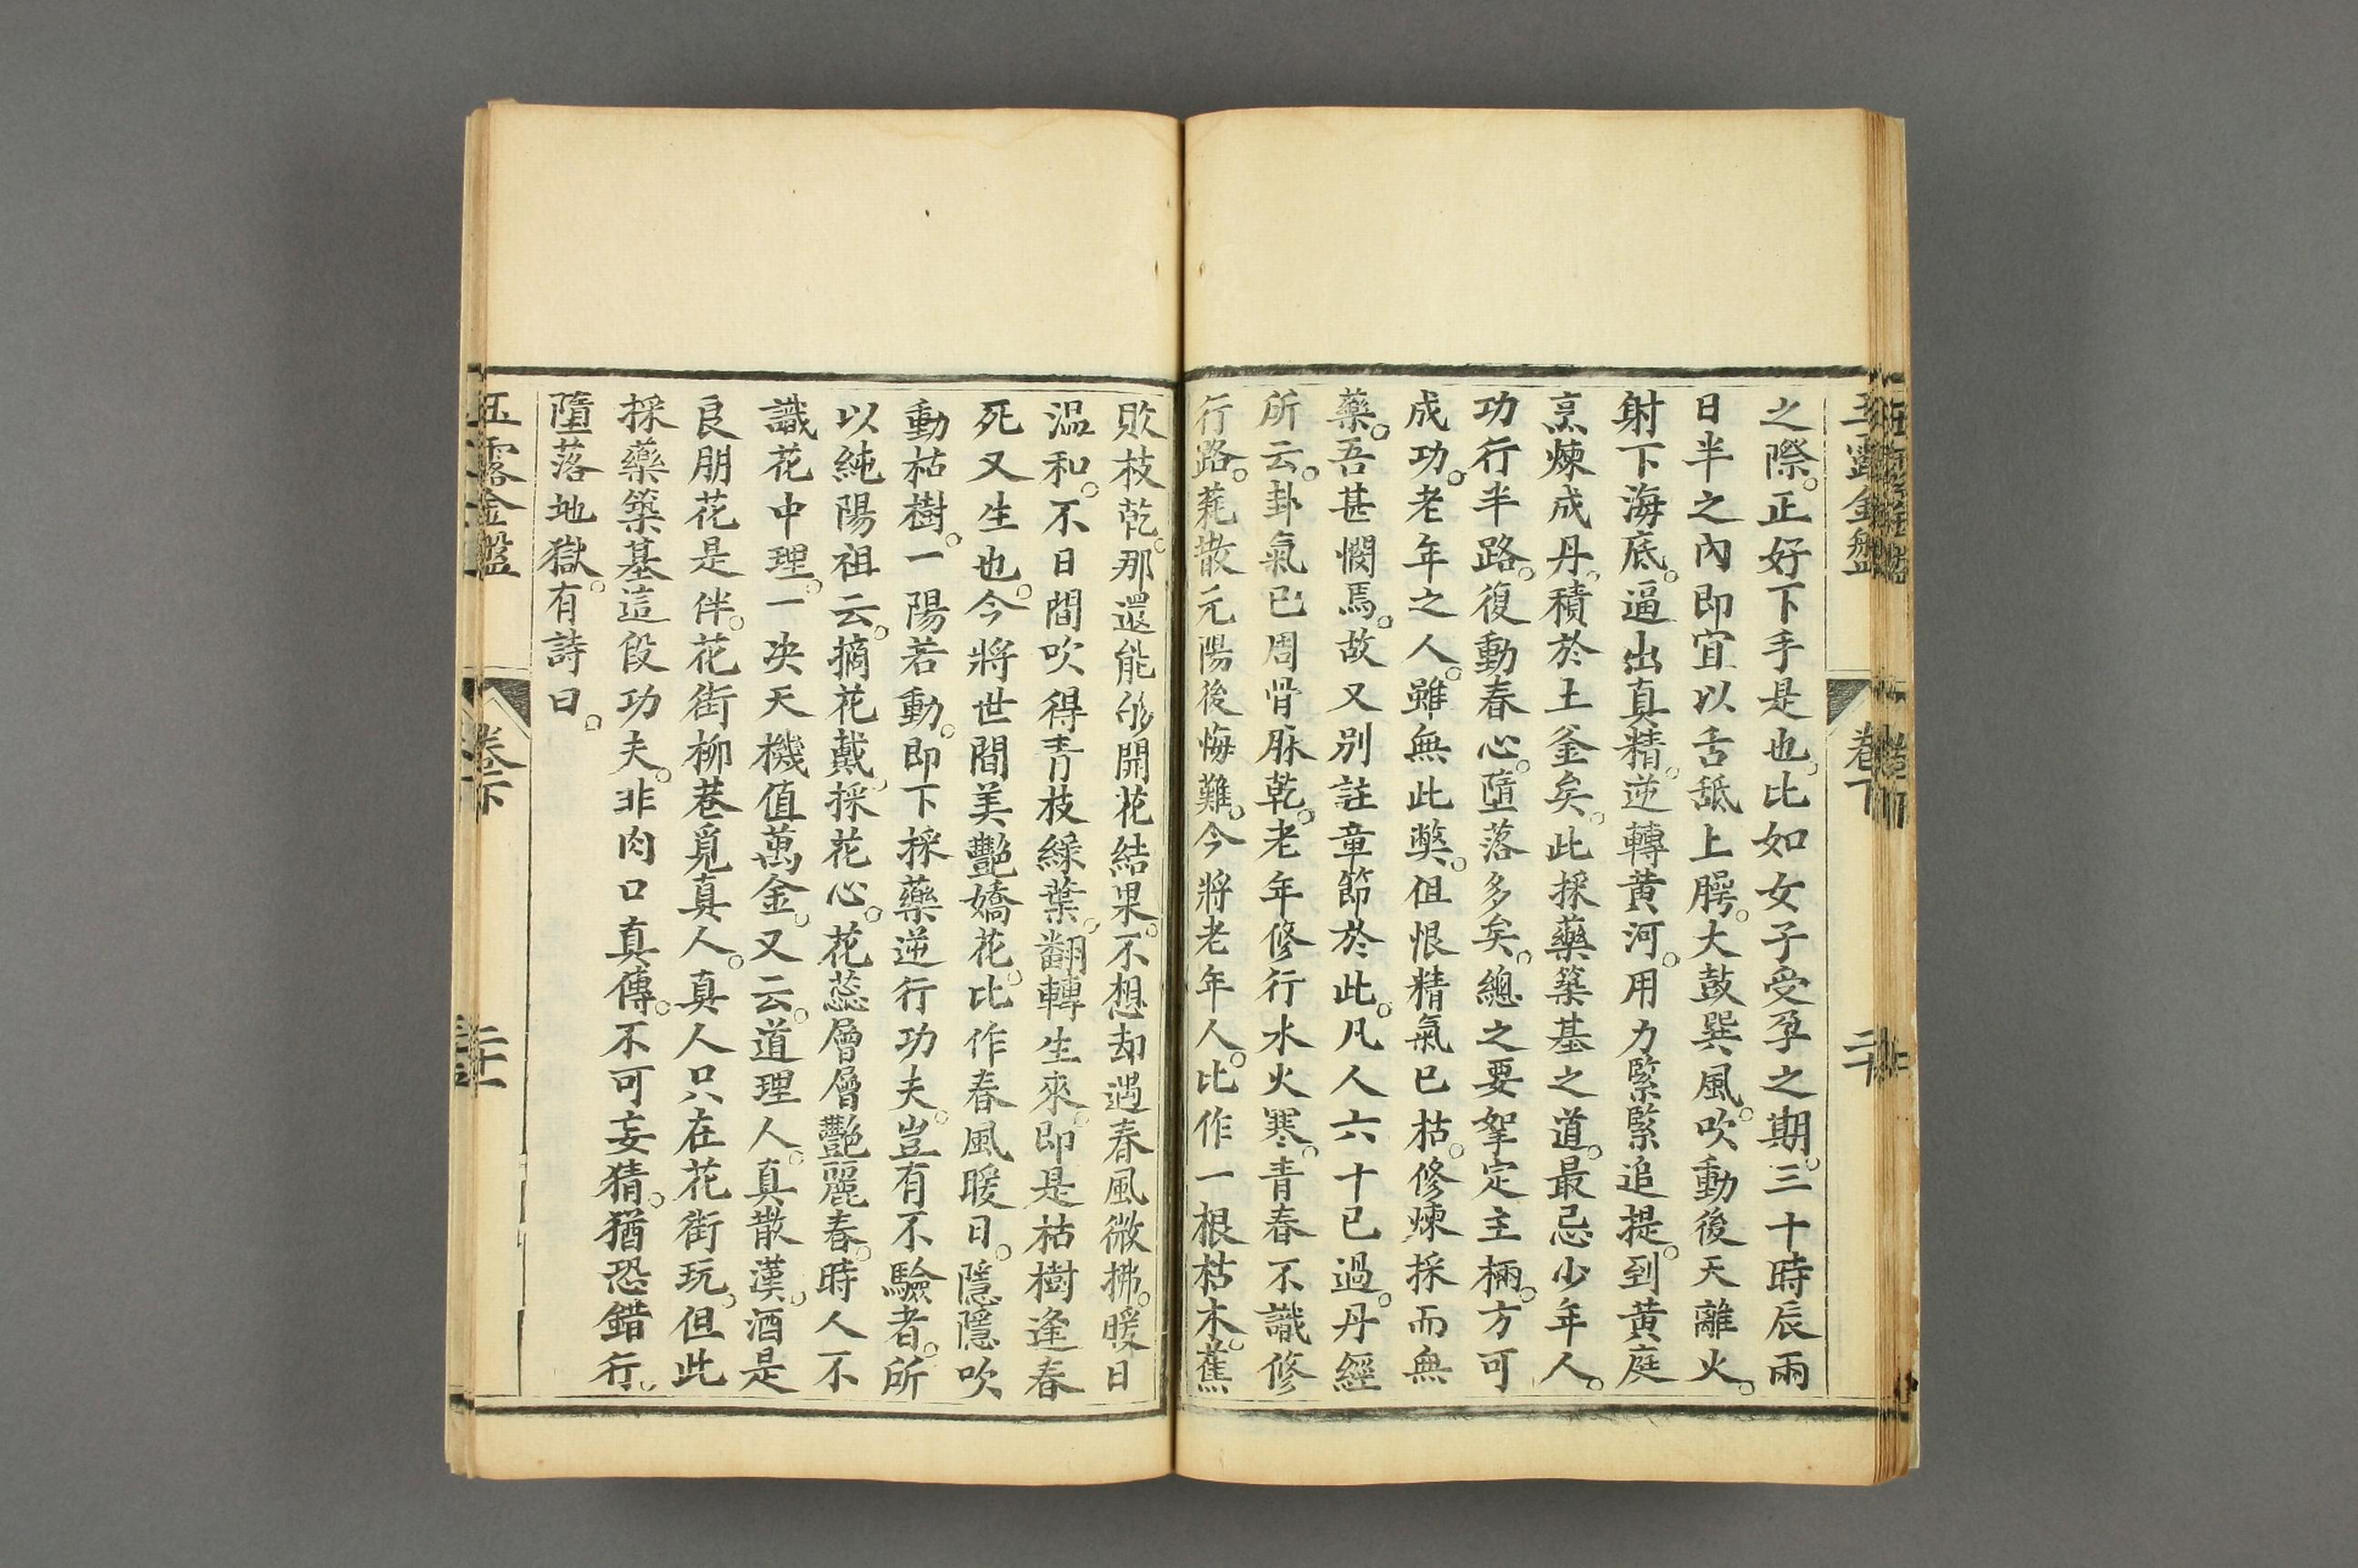 之際。正好下手是也。比如女子受孕之期。三十時辰兩
日半之內即宜以舌舐上腭。大鼓巽風。吹動後天離火。
射下海底。逼出真精。逆轉黃河。用力緊緊追提。到黃庭
烹煉成丹。積於土釜矣。此採藥築基之道。最忌少年人。
功行半路。復動春心。墮落多矣。總之要拏定主柄。方可
成功。老年之人。雖無此獘。但恨精氣已枯。修煉採而無
藥。吾甚憫焉。故又別註章節於此。凡人六十已過。丹經
所云。卦氣已周骨脉乾。老年修行水火寒。青春不識修
行路。耗散元陽後悔難。今將老年人。比作一根枯木。蕉
敗枝乾。那還能彀開花結果。不想却遇春風微拂。暖日
温和。不日間吹得青枝綠葉。翻轉生來。即是枯樹逢春
死又生也。今將世間美艷嬌花。比作春風暖日。隱隱吹
動枯樹。一陽若動。即下採藥逆行功夫。豈有不驗者。所
以純陽祖云。摘花戴。採花心。花蕊層層艷麗春。時人不
識花中理。一决天機值萬金。又云。道理人。真散漢。酒是
良朋花是伴。花街柳巷覓真人。真人只在花街玩。但此
採藥築基這段功夫。非肉口真傳。不可妄猜。猶恐錯行。
墮落地獄。有詩曰。
五露金盤
卷下
二十一